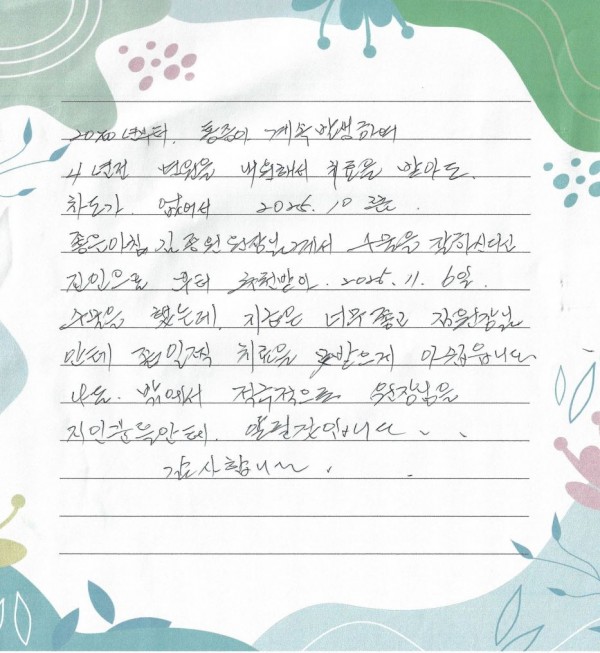 2020년부터. 통증이 계속 발생하며
4년전 병원을 내원해서 치료을 받아도.
차도가. 없어서 2025. 10 초순.
좋은아침 김종원 원장님께서 수술을 잘하신다고
지인으로 부터 추천받아. 2025. 11. 6일.
수술을 했는데. 지금은 너무 좋고 김원장님
안테 좀 일찍 치료을 받은게 아쉽습니다
나도. 밖에서 적극적으로 원장님을
지인분들안테. 알릴것입니다.
감사합니다.